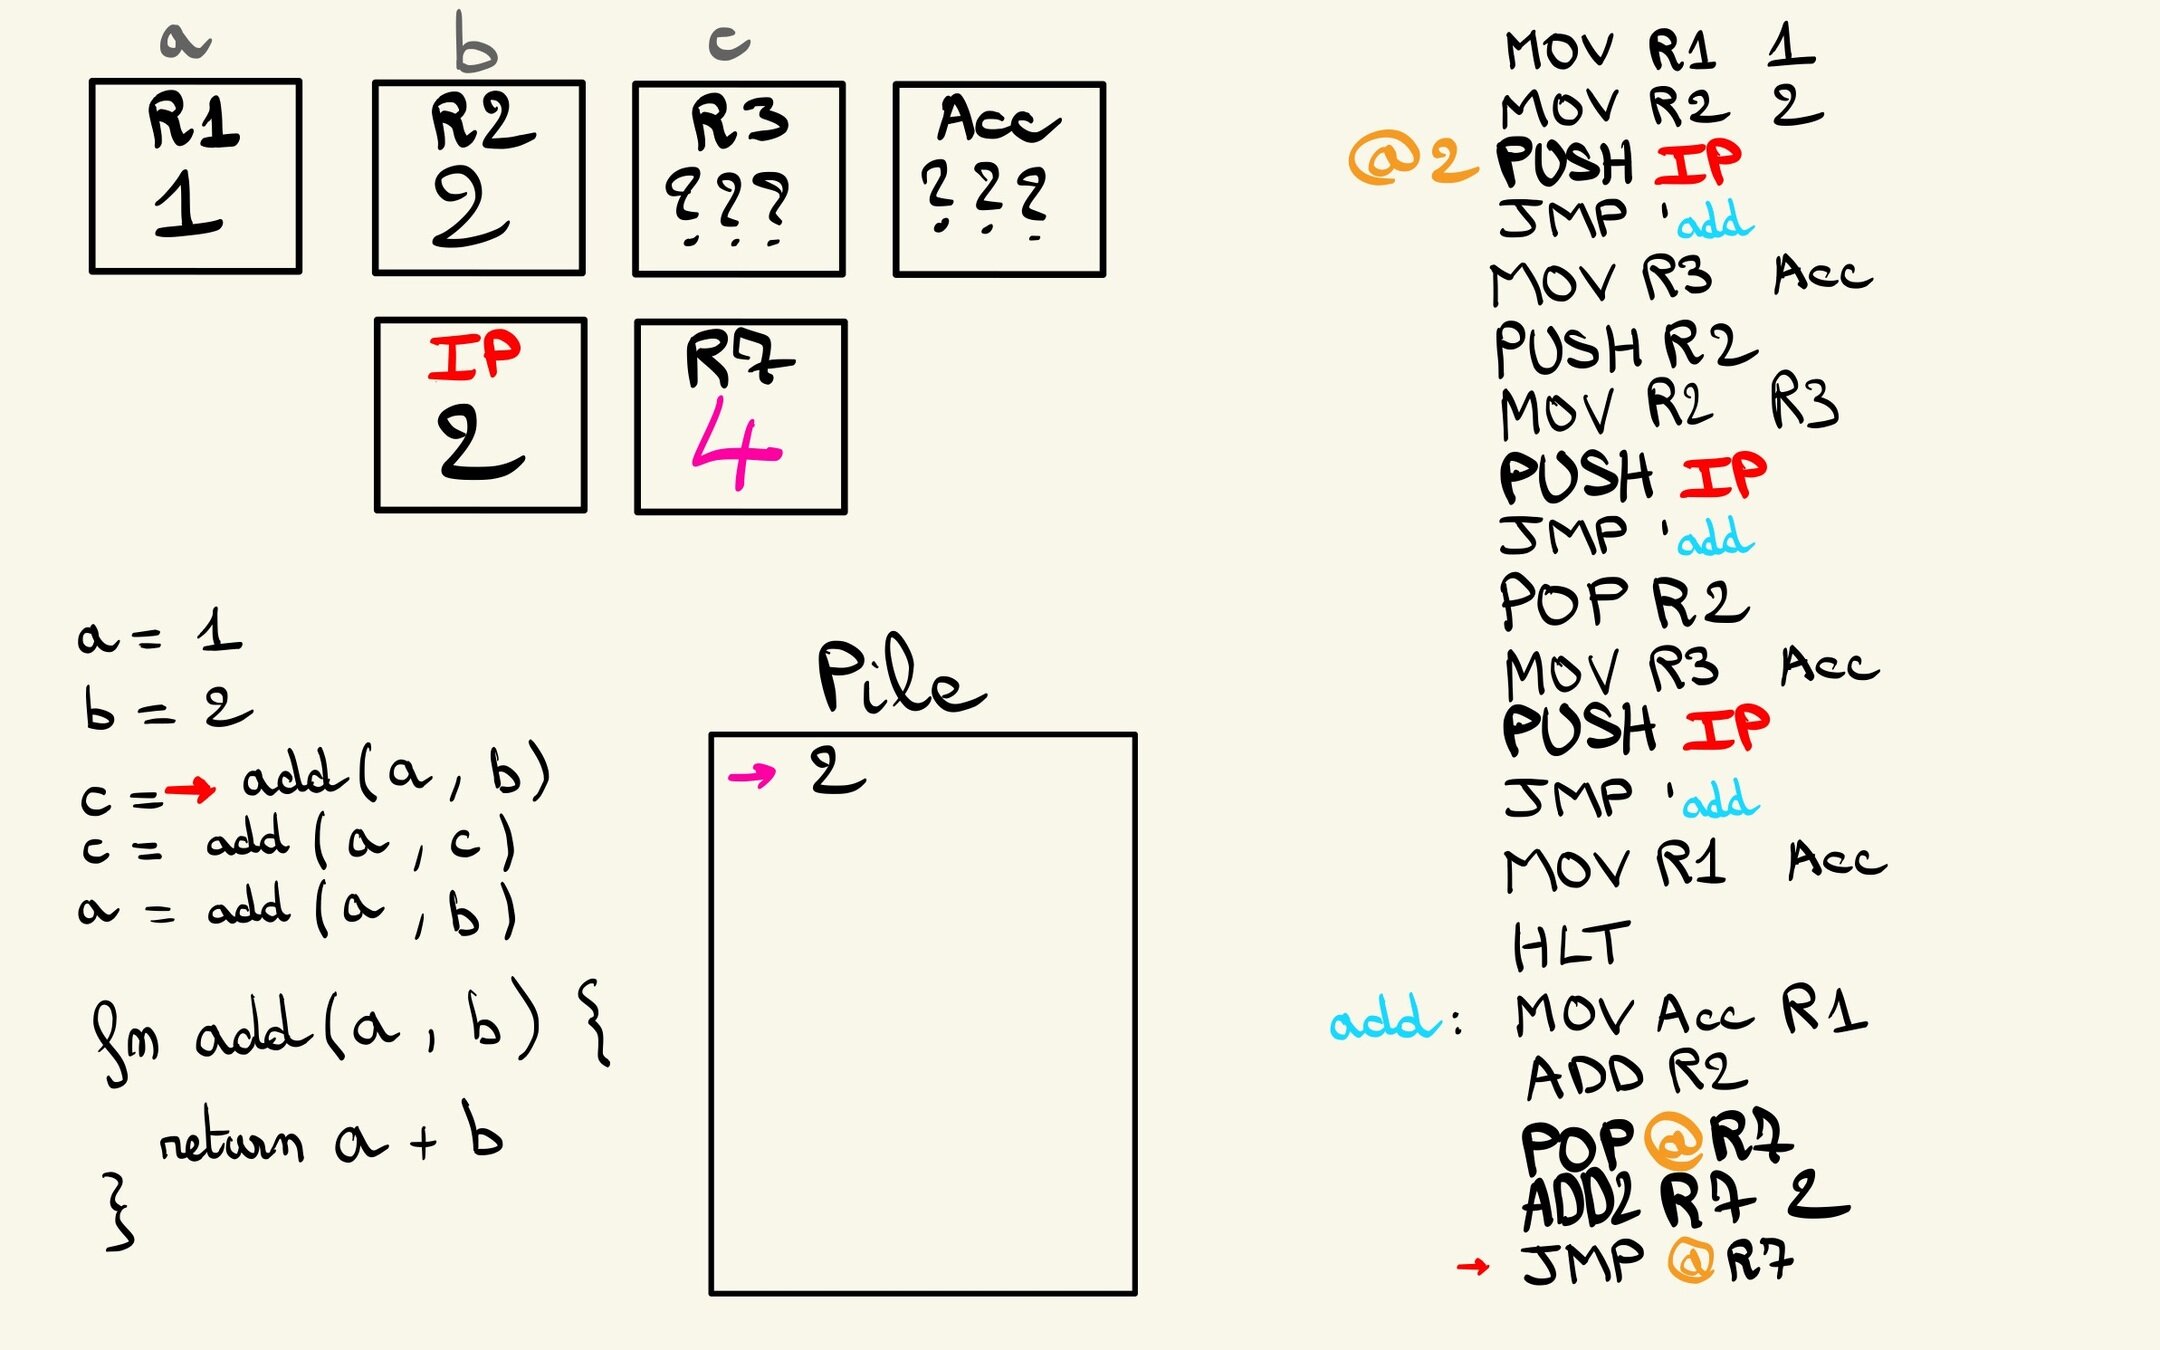 a b c
R1 R2 R3 Acc
1 2 ??? ???
IP R7
2 4
a = 1
b = 2
c = → add(a, b)
c = add(a, c)
a = add(a, b)
fn add(a, b) {
return a + b
}
Pile
→ 2
MOV R1 1
MOV R2 2
@2 PUSH IP
JMP 'add
MOV R3 Acc
PUSH R2
MOV R2 R3
PUSH IP
JMP 'add
POP R2
MOV R3 Acc
PUSH IP
JMP 'add
MOV R1 Acc
HLT
add: MOV Acc R1
ADD R2
POP @R7
ADD2 R7 2
→ JMP @R7